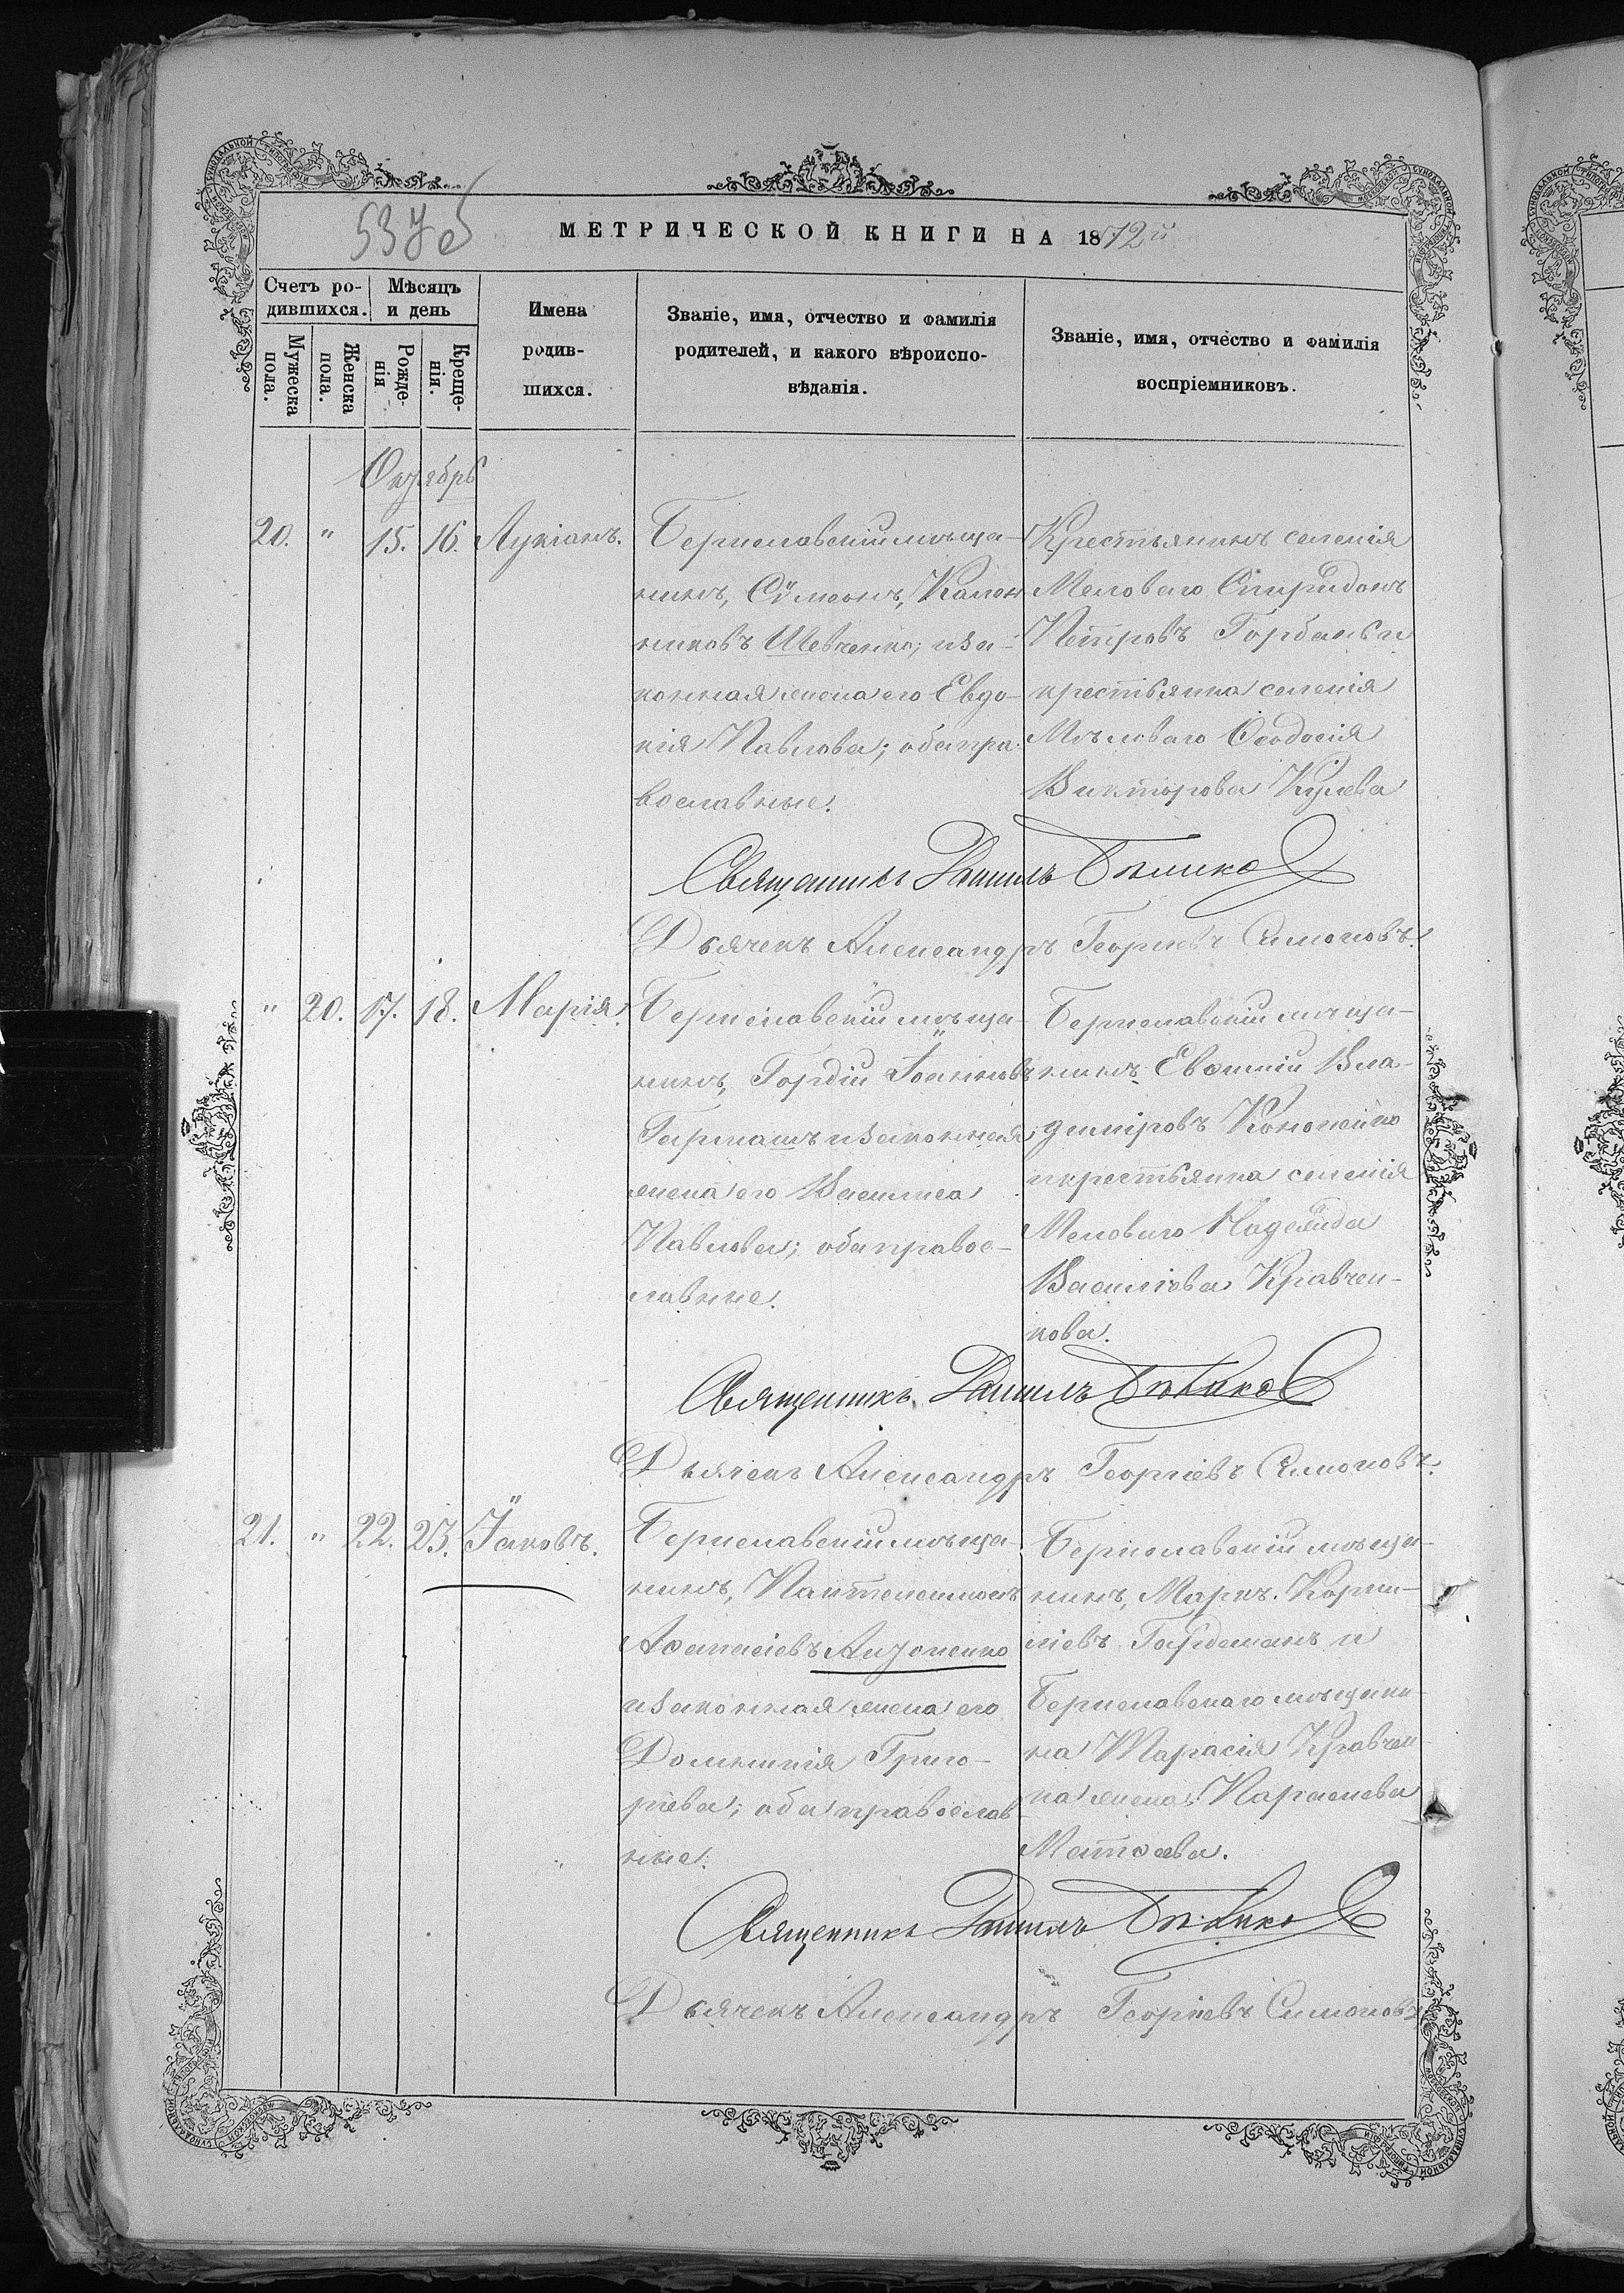 537 об
МЕТРИЧЕСКОЙ КНИГИ НА 1872й
Счетъ ро-
дившихся.
Мужеска
пола.
Женска
пола.
Мѣсяцъ
и день
Рожде-
нія
Креще-
нія.
Имена
родив-
шихся.
Званіе, имя, отчество и фамилія
родителей, и какого вѣроиспо-
вѣданія.
Званіе, имя, отчество и фамилія
воспріемниковъ.
Октябрь
20. " 15. 16. Лукіанъ.
Бериславскій мѣща-
нинъ, Сѵмеонъ, Кален
никовъ Шевченко; и за-
конная жена его Евдо-
кія Павлова; оба пра-
вославные.
Крестьянинъ селенія
Меловаго Спиридонъ
Петровъ Горбань и
крестьянка селенія
Мѣловаго Ѳеодосія
Викторова
Священникъ Даніилъ Бѣликов
Дьячекъ Александръ Георгіевъ Симоновъ.
" 20. 17. 18. Марія.
Бериславскій мѣща-
нинъ, Гордій Іоанновъ
Гармашъ и законная
жена его Василиса
Павлова; оба правос-
лавные.
Бериславскій мѣща-
нинъ Евѳимій Вла-
диміровъ Кононенко
и крестьянка селенія
Меловаго Надежда
Василіева Кравчен-
кова.
Священникъ Даніилъ Бѣликов
Дьячекъ Александръ Георгіевъ Симоновъ.
21. " 22. 23. Іаковъ.
Бериславскій мѣща-
нинъ, Пантелеимонъ
Аѳанасіевъ Антоненко
и законная жена его
Домникія Григо-
рiева; оба православ
ные.
Бериславскій мѣща-
нинъ, Маркъ Корни-
ліевъ и
Бериславскаго мѣщани-
на Тарасія Кравчен-
ка жена Параскева
Матѳеева.
Священникъ Даніилъ Бѣликов
Дьячекъ Александръ Георгіевъ Симоновъ